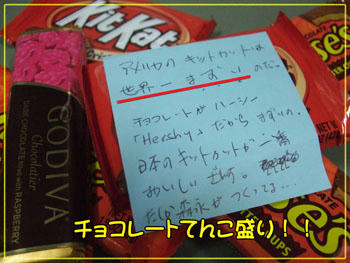 KitKat
アメリカの キットカットは
世界一 まずい のだ。
チョコレートが ハーシー
「Hershy」だから まずいの。
日本のキットカットが 一番
おいしい
だって 森永が つくってる...
GODIVA
Chocolatier
DARK CHOCOLATE FILLED WITH RASPBERRY
チョコレートてんこ盛り！！